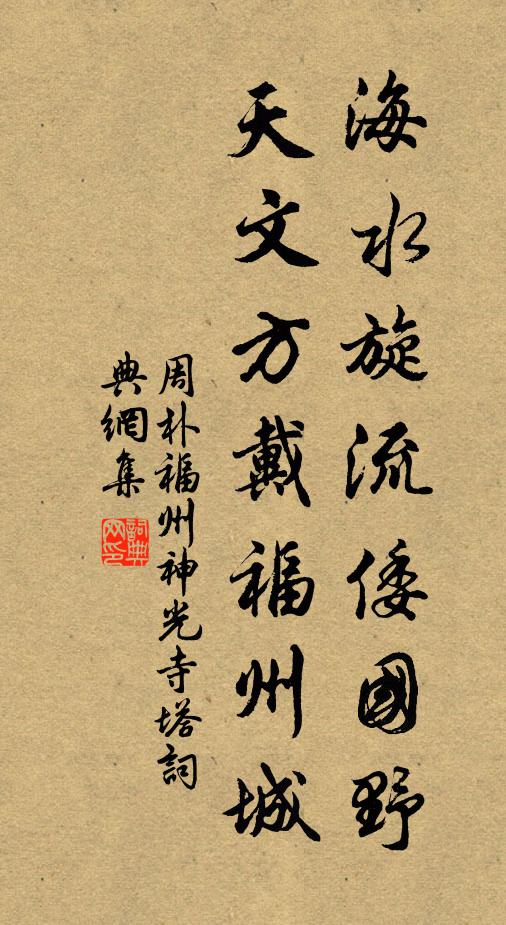 海水旋流倭國野
天文方戴福州城
周朴福州神光寺塔詞
典網集
詞典
网印